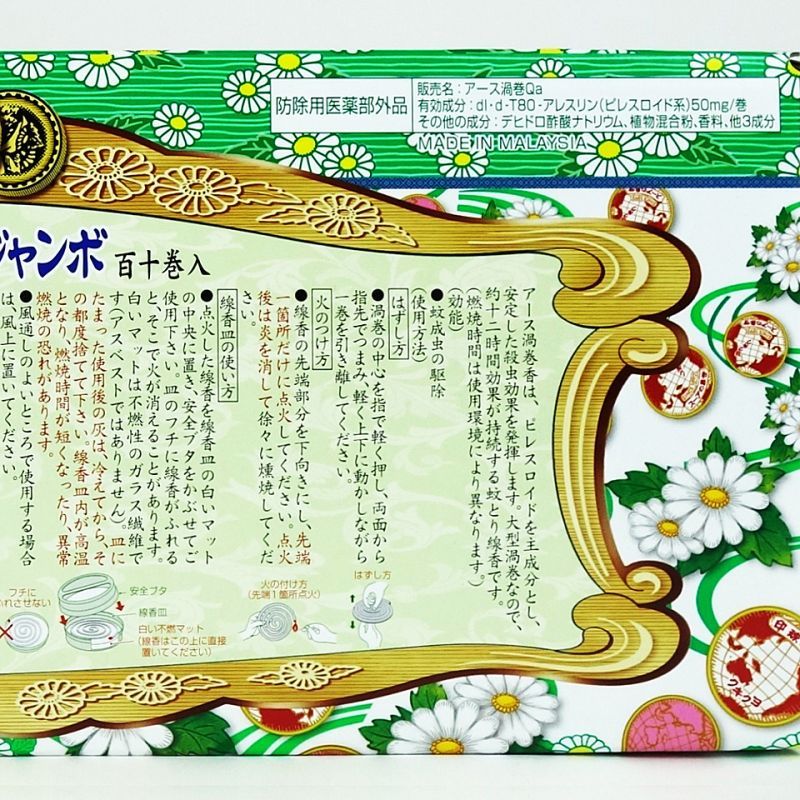 防除用医薬部外品
販売名：アース渦巻Qa
有効成分：dl・d-T80-アレスリン(ピレスロイド系)50mg/巻
その他の成分：デヒドロ酢酸ナトリウム、植物混合粉、香料、他3成分
MADE IN MALAYSIA
ジャンボ 百十巻入
アース渦巻香は、ピレスロイドを主成分とし、
安定した殺虫効果を発揮します。大型渦巻なので、
約十二時間効果が持続する蚊とり線香です。
(燃焼時間は使用環境により異なります。)
(効能)
●蚊成虫の駆除
(使用方法)
はずし方
●渦巻の中心を指で軽く押し、両面から
指先でつまみ、軽く上下に動かしながら
一巻を引き離してください。
火のつけ方
●線香の先端部分を下向きにし、先端
一箇所だけに点火してください。点火
後は炎を消して徐々に燻焼してくだ
さい。
線香皿の使い方
●点火した線香を線香皿の白いマット
の中央に置き、安全ブタをかぶせてご
使用下さい。皿のフチに線香がふれる
と、そこで火が消えることがあります。
白いマットは不燃性のガラス繊維で
す(アスベストではありません)。皿に
たまった使用後の灰は、冷えてから、そ
の都度捨てて下さい。線香皿内が高温
となり、燃焼時間が短くなったり、異常
燃焼の恐れがあります。
●風通しのよいところで使用する場合
は、風上に置いてください。
フチに
ふれさせない
安全ブタ
線香皿
白い不燃マット
(線香はこの上に直接
置いてください)
火の付け方
(先端1箇所点火)
はずし方